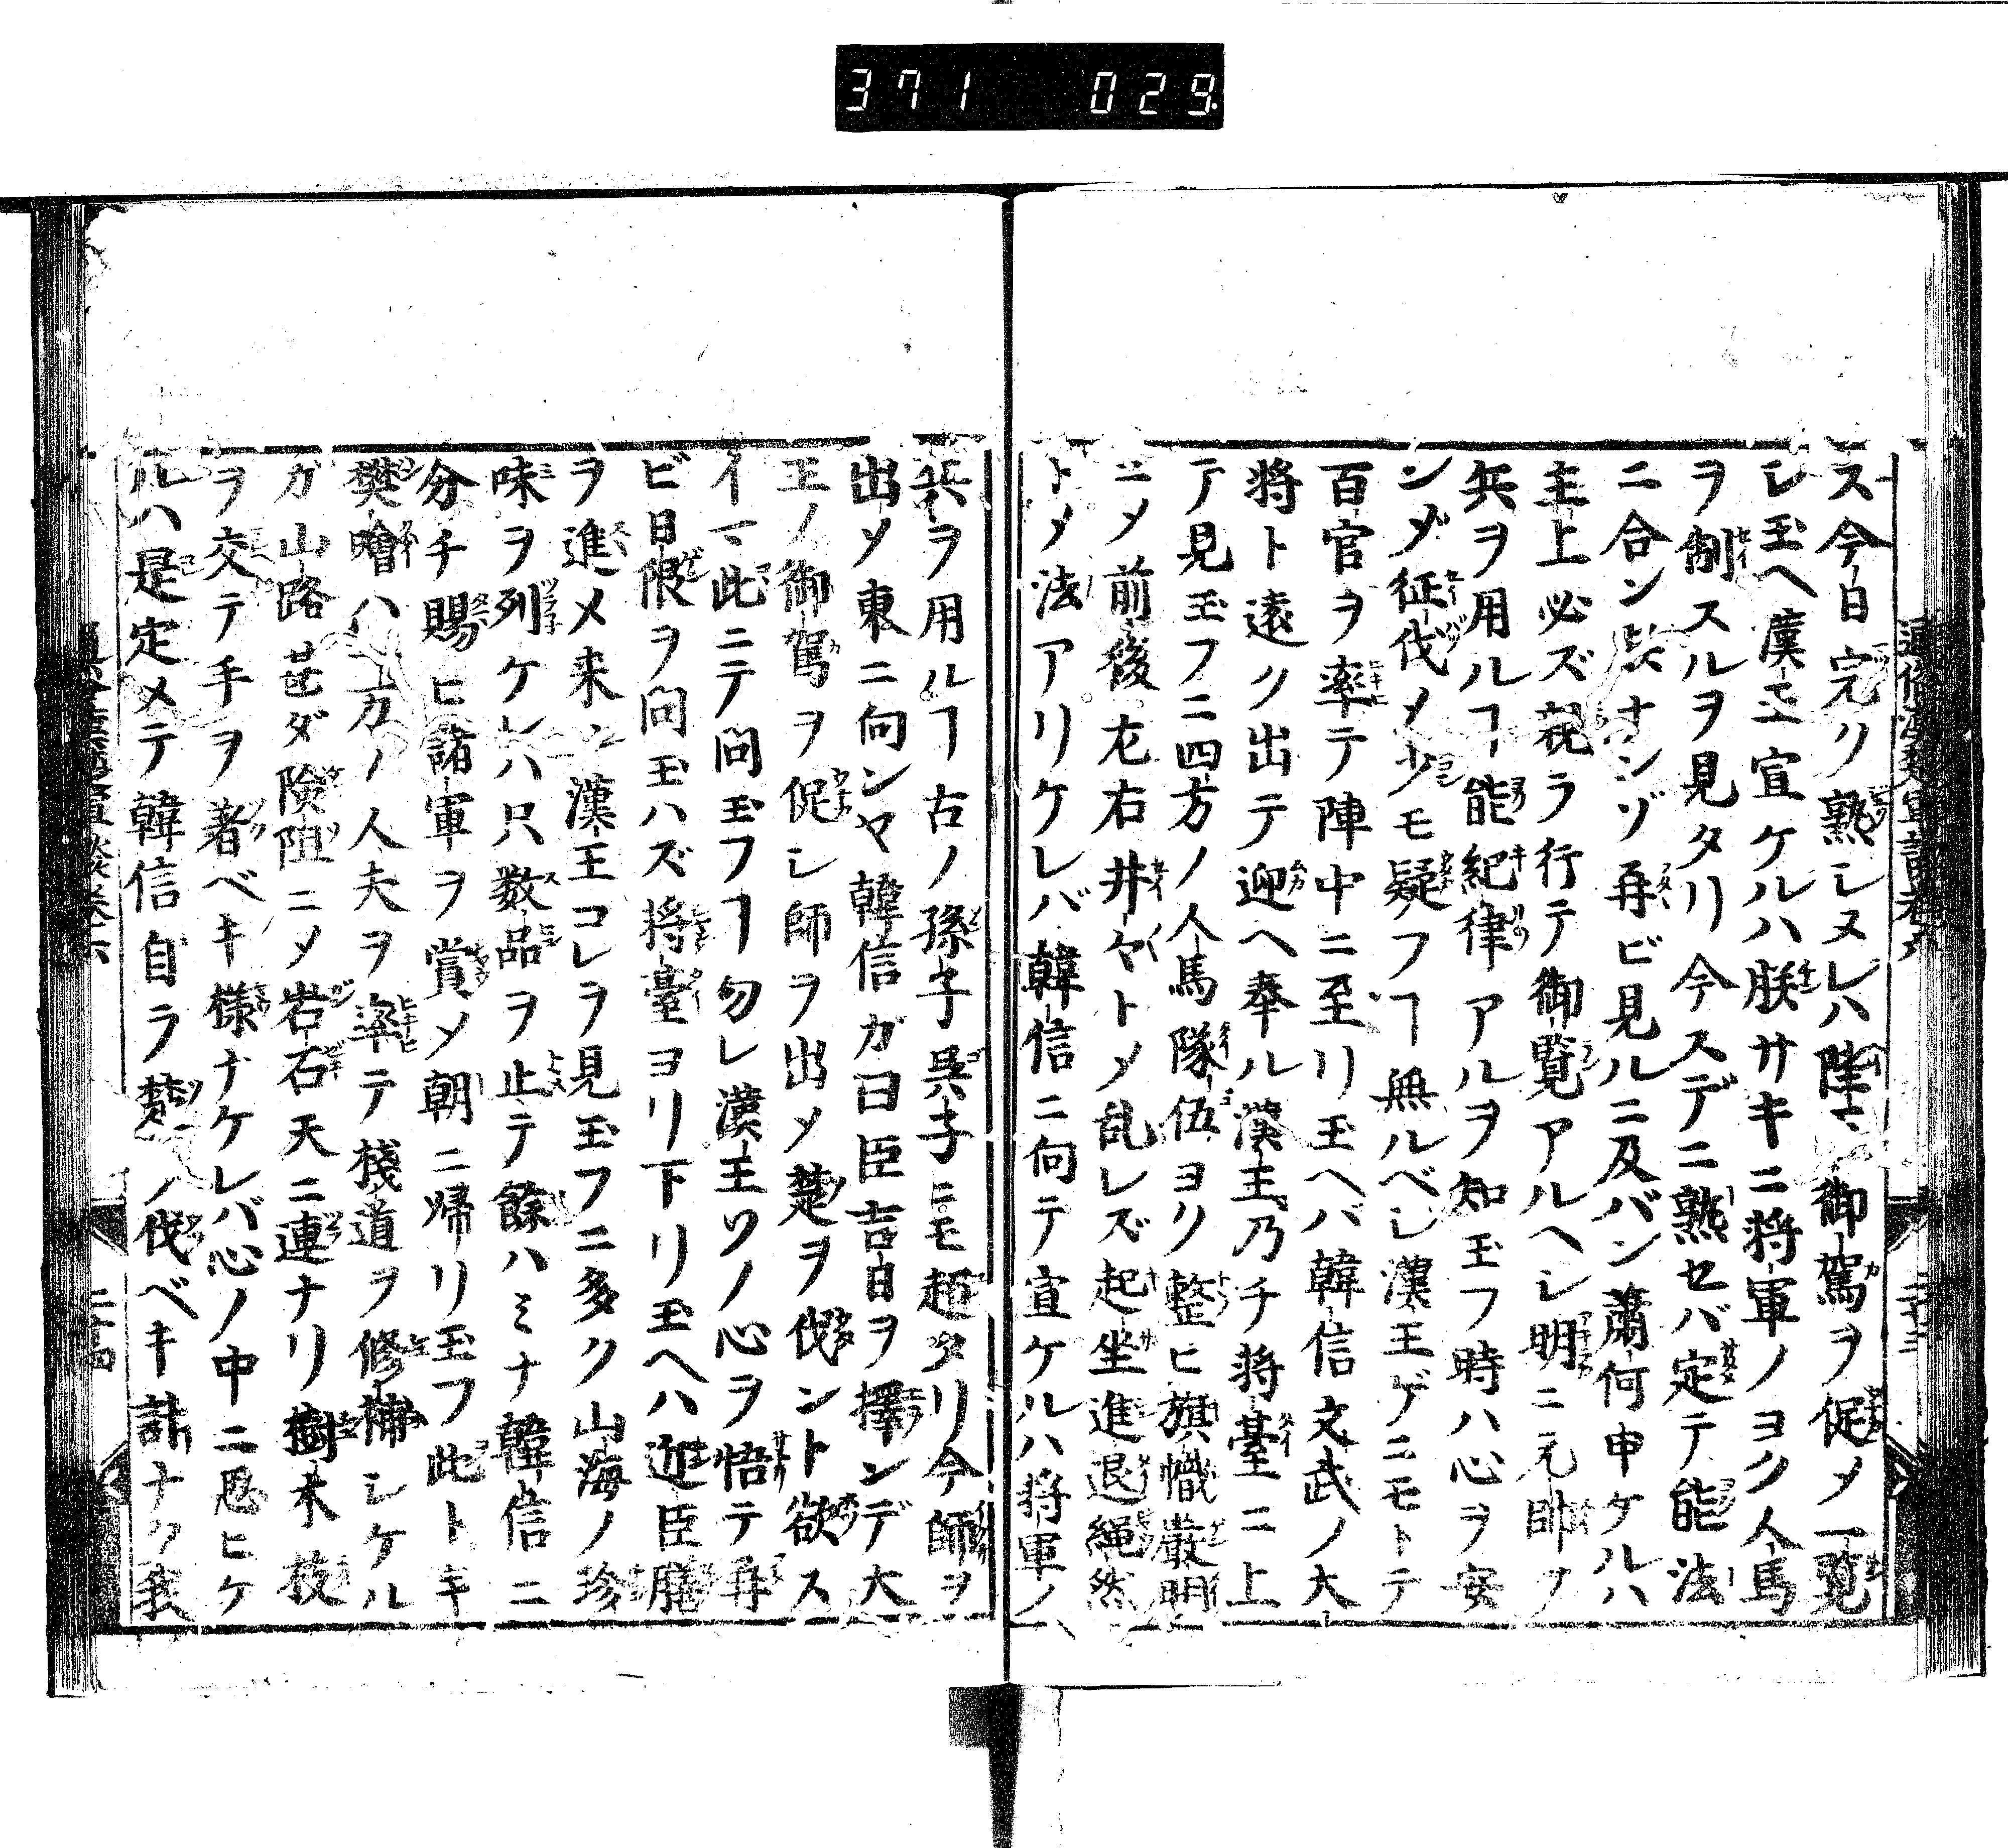 371 029
ス今日完リ熟シヌレハ陛下御駕ヲ促メ一覧
シ玉ヘ漢王宣ケルハ朕サキニ将軍ノヨク人馬
ヲ制スルヲ見タリ今スデニ熟セバ定テ能法
ニ合ン此ナンゾ再ビ見ルニ及バン蕭何申ケルハ
主上必ズ親ラ行テ御覧アルヘシ明ニ元帥ノ
兵ヲ用ルヿ能紀律アルヲ知玉フ時ハ心ヲ安
ンダ征伐メ少モ疑フヿ無ルベシ漢王ゲニモトテ
百官ヲ率テ陣中ニ至リ玉ヘバ韓信文武ノ大
将ト遠ク出テ迎ヘ奉ル漢王乃チ将臺ニ上
テ見玉フニ四方ノ人馬隊伍ヨリ整ヒ旗幟厳明
ニメ前後左右井々トメ乱レズ起坐進退縄然
トメ法アリケレバ韓信ニ向テ宣ケルハ将軍ノ
兵ヲ用ルヿ古ノ孫子呉子ニモ超タリ今師ヲ
出メ東ニ向ンヤ韓信ガ曰臣吉日ヲ擇ンデ大
王ノ御駕ヲ促シ師ヲ出メ楚ヲ伐ント欲ス
イマ此ニテ問玉フヿ勿レ漢王ソノ心ヲ悟テ再
ビ日限ヲ問玉ハズ将臺ヨリ下リ玉ヘハ近臣膳
ヲ進メ来ル漢王コレヲ見玉フニ多ク山海ノ珍
味ヲ列ケレハ只数品ヲ止テ餘ハミナ韓信ニ
分チ賜ヒ諸軍ヲ賞メ朝ニ帰リ玉フ此トキ
樊噲ハ一万ノ人夫ヲ率テ棧道ヲ修補シケル
ガ山路甚ダ険阻ニメ岩石天ニ連ナリ樹木枝
ヲ交テ手ヲ着ベキ様ナケレバ心ノ中ニ思ヒケ
ルハ是定メテ韓信自ラ楚ノ伐ベキ計ナク我